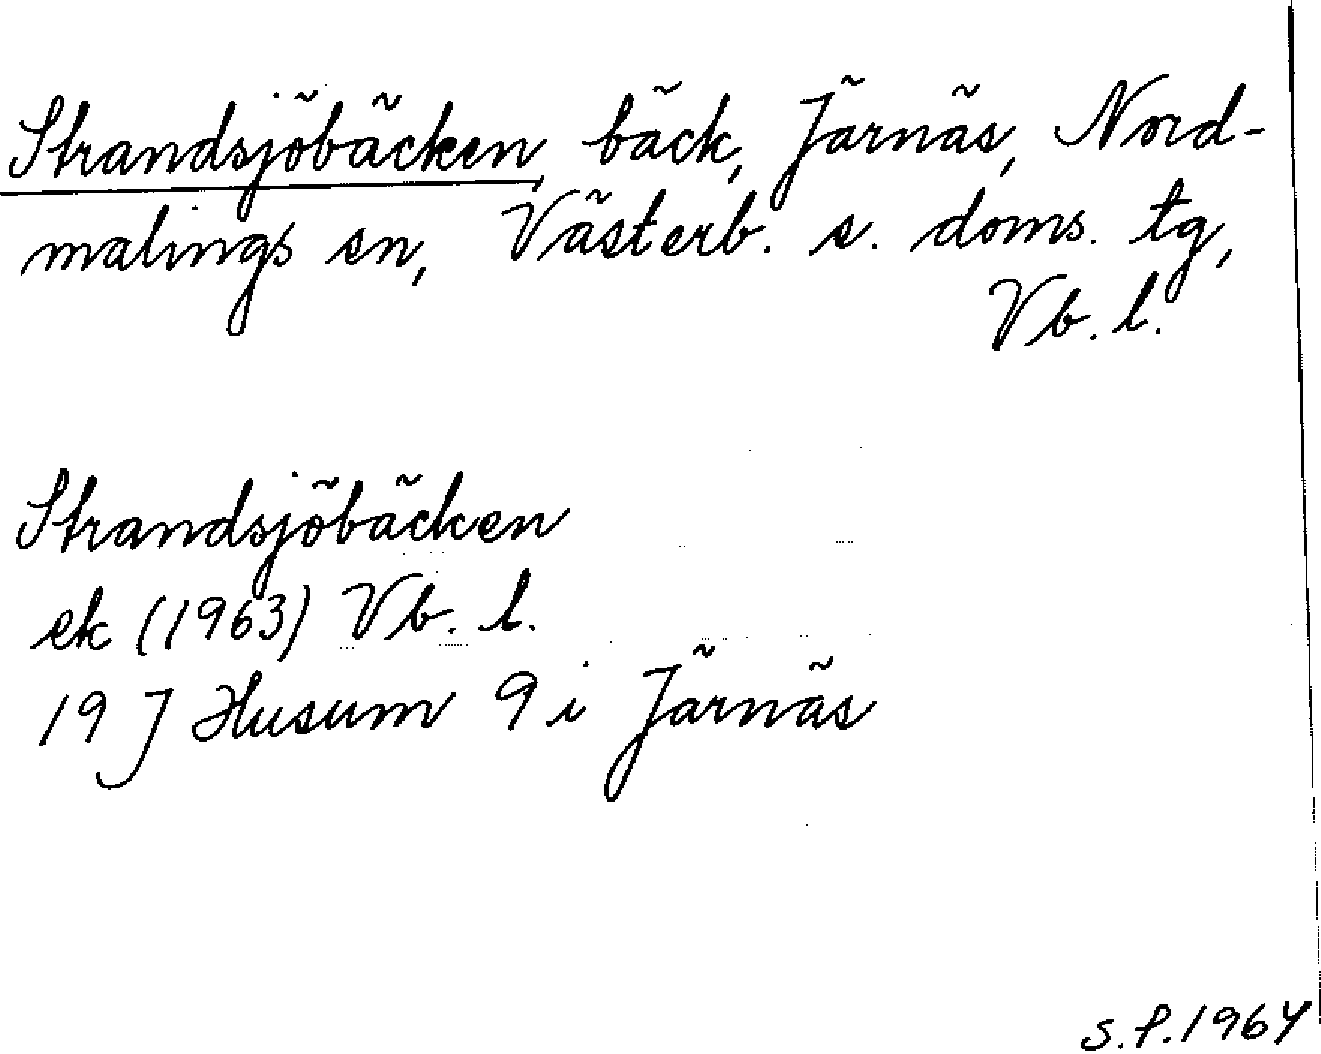 Strandsjöbäcken, bäck, Järnäs, Nord-
malings sn, Västerb. s. doms. tg,
Vb. l.
Strandsjöbäcken
ek (1963) Vb. l.
19 J Husum 9 i Järnäs
S.P. 1964